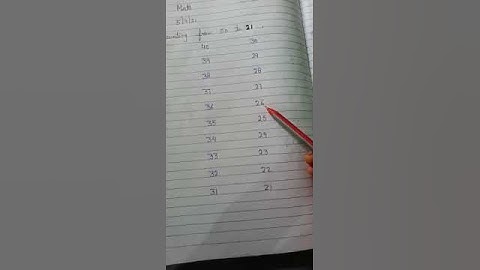 Math
5/7/21
counting from 50 to 21
40 30
39 29
38 28
37 27
36 26
35 25
34 24
33 23
32 22
31 21